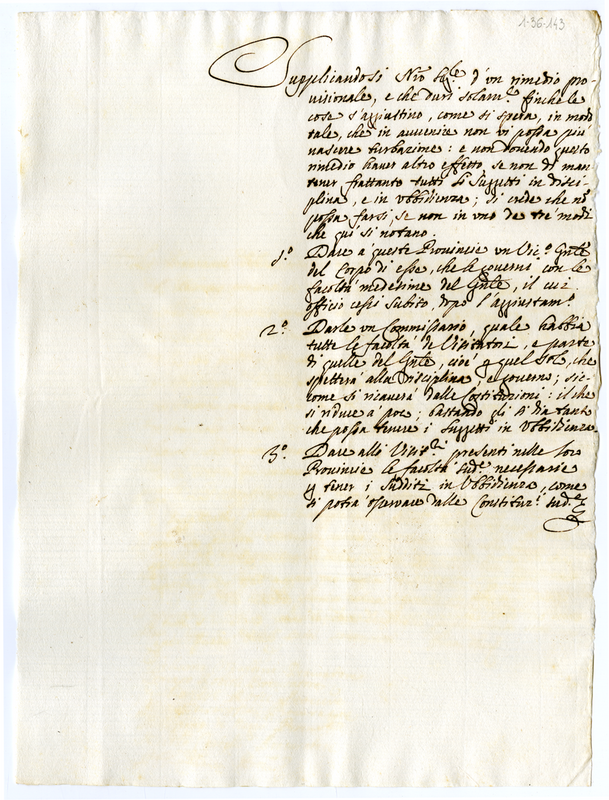 1-36-143
Supplicandosi Nro Sig.re d'un rimedio pro-
visionale, e che duri solam.te finche le
cose s'aggiustino, come si spera, in modo
tale, che in auuenire non vi possa più
nascere turbazione: e non dovendo questo
rimedio hauer altro effetto, se non di man-
tener frattanto tutti li Suggetti in disci-
plina, e in Vbbidienza; si crede che nō
possa farsi, se non in uno de trè modi
che quì si notano.
1.o Dare à queste Prouincie un Vic.o Gnle
del Corpo di esse, che le governi, con le
facoltà medesime del Gnle, il cui
officio cessi subito, dopo l'aggiustam.o
2.o Darle un Commissario, quale habbia
tutte le facoltà de Visitatori, e parte
di quelle del Gnle, cioè quel solo, che
spetterà alla Disciplina, e governo; sic-
come si ricauerà dalle Costituzioni: il che
si riduce à poco; bastando gli si dia tanto
che possa tenere i Suggetti in Vbbidienza
3.o Dare alli Visit.ri presenti nelle loro
Prouincie le facoltà sud.e necessarie
p tener i Sudditi in Vbbidienza, come
si potrà osservare dalle Constituz.i sud.e